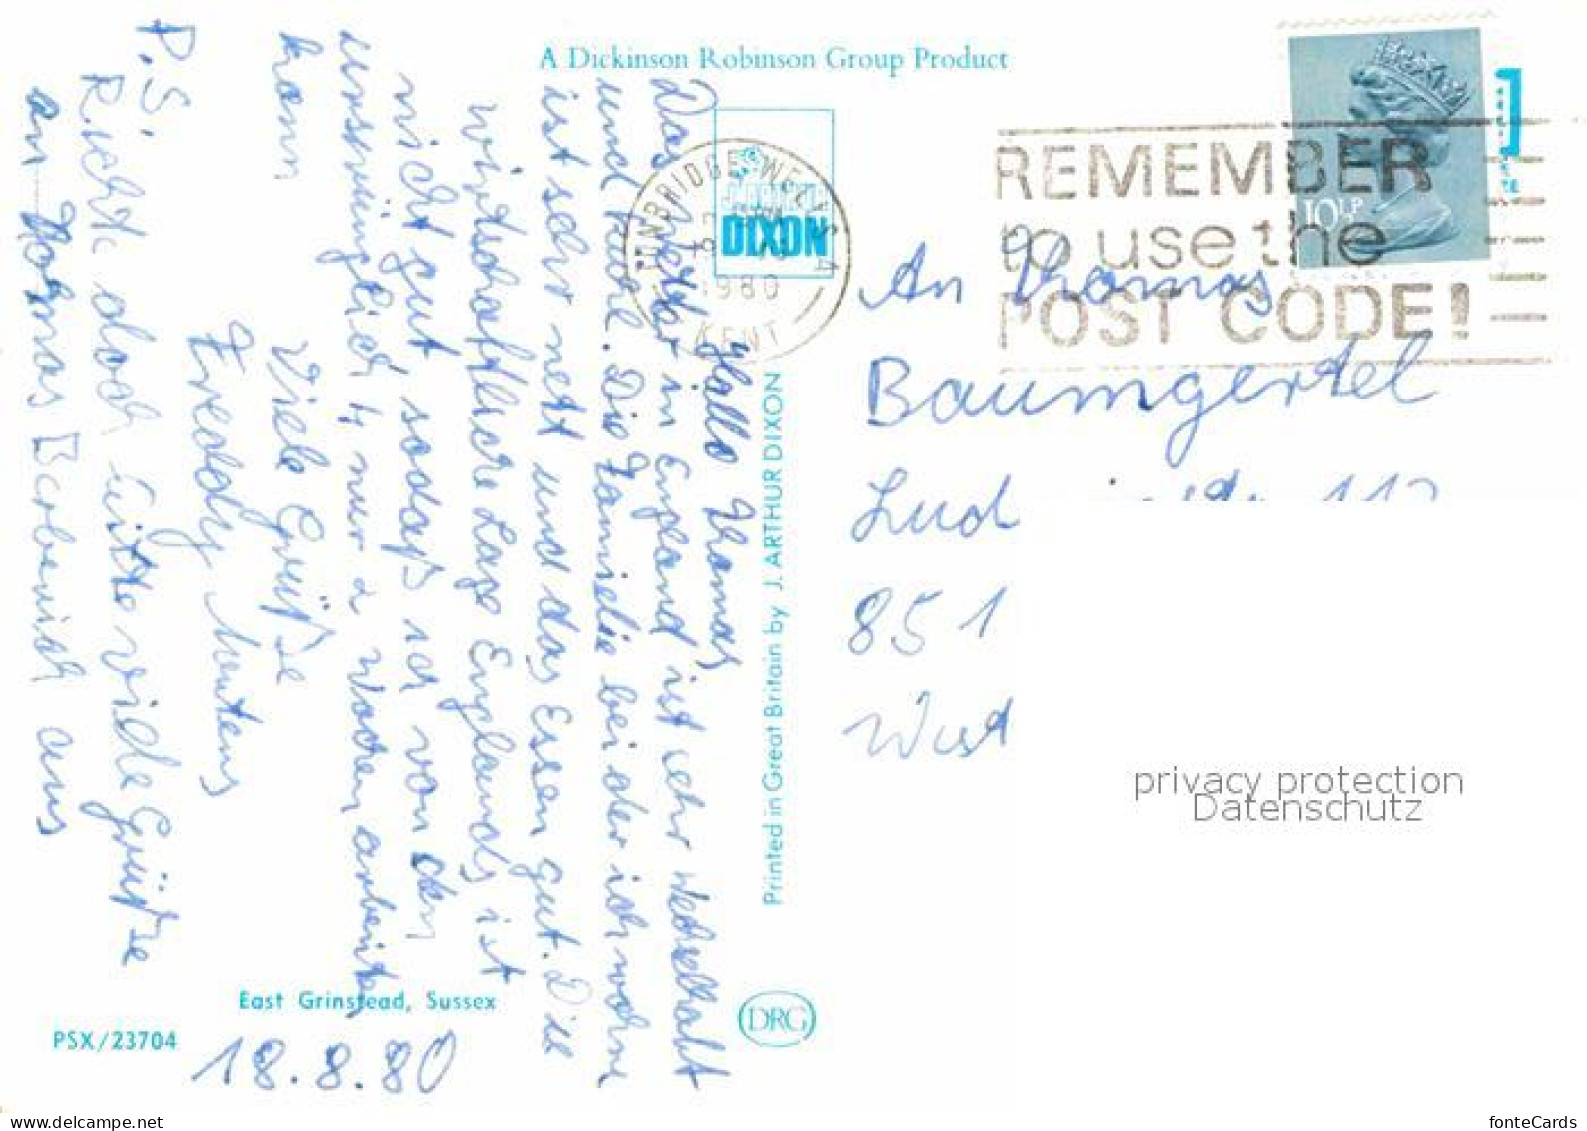 A Dickinson Robinson Group Product
J. ARTHUR
DIXON
TUNBRIDGE WELLS
1980
KENT
REMEMBER
to use the
POST CODE!
10½P
Hallo Thomas
Das Wetter in England ist sehr wechselhaft
und kühl. Die Familie bei der ich wohne
ist sehr nett und das Essen gut. Die
wirtschaftliche Lage Englands ist
nicht gut, sodaß ich von den
ursprünglich 4 nur 2 Wochen arbeiten
kann
Viele Grüße
Freddy
P.S.
Richte doch bitte viele Grüße
an Thomas aus
18.8.80
East Grinstead, Sussex
PSX/23704
Printed in Great Britain by J. ARTHUR DIXON
DRG
An Thomas
Baumgertel
Lud
851
West
privacy protection
Datenschutz
www.delcampe.net
fonteCards